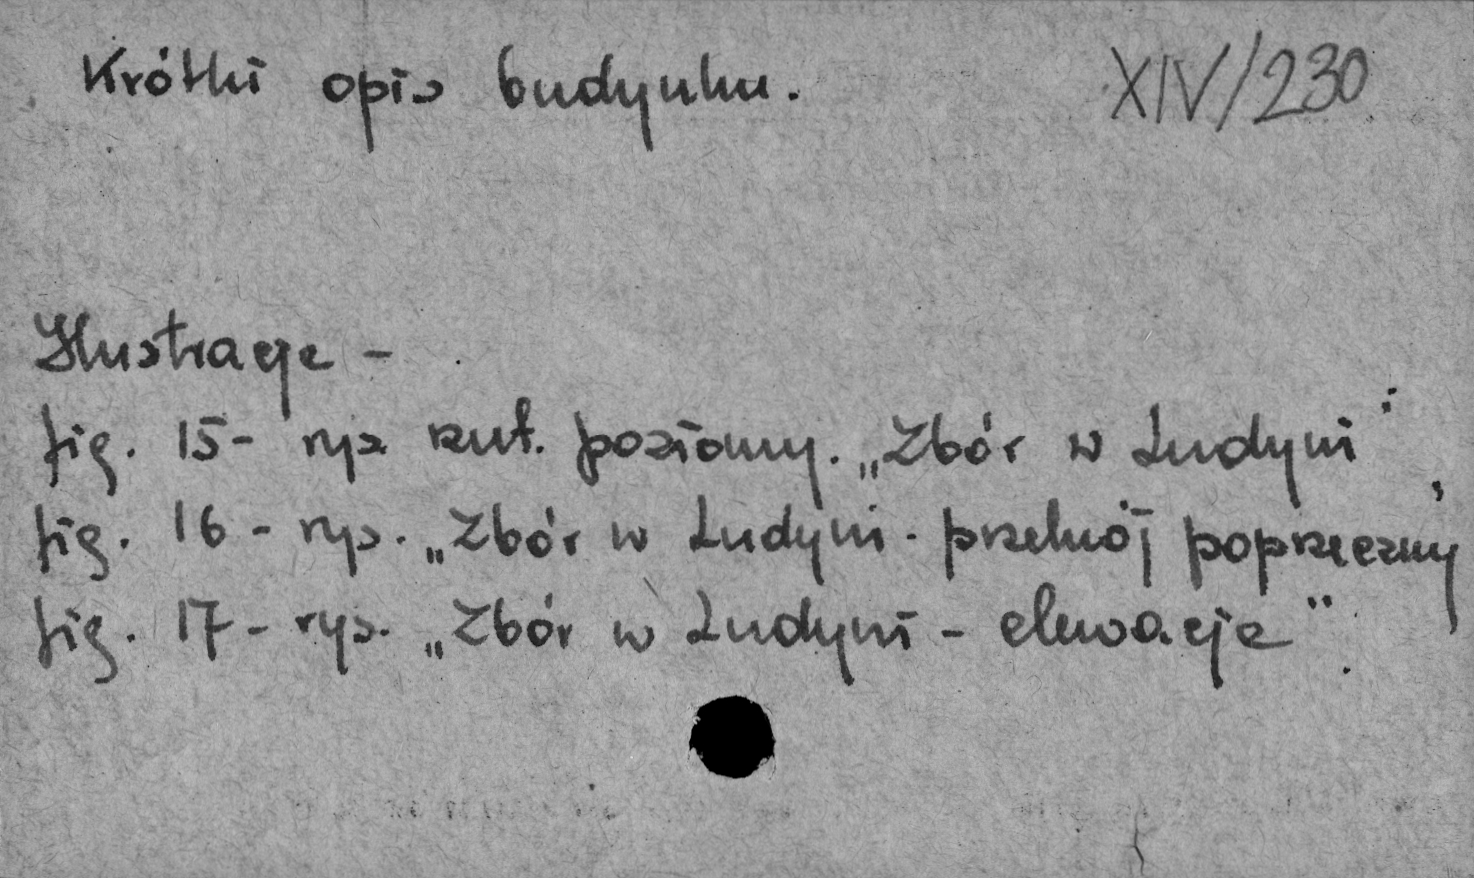 Krótki opis budynku.
XIV/230
Ilustracje -
fig. 15 - rys rzut. poziomy. „Zbór w Ludyni"
fig. 16 - rys. „Zbór w Ludyni. przekrój poprzeczny"
fig. 17 - rys. „Zbór w Ludyni - elewacje".